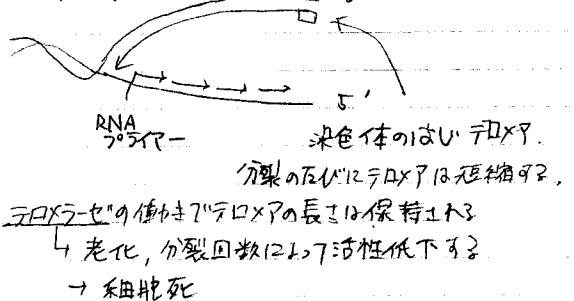 5'
RNA
プライマー
染色体のはし テロメア.
分裂のたびにテロメアは短縮する.
テロメラーゼの働きでテロメアの長さは保持される
↳ 老化, 分裂回数によって活性低下する
→ 細胞死